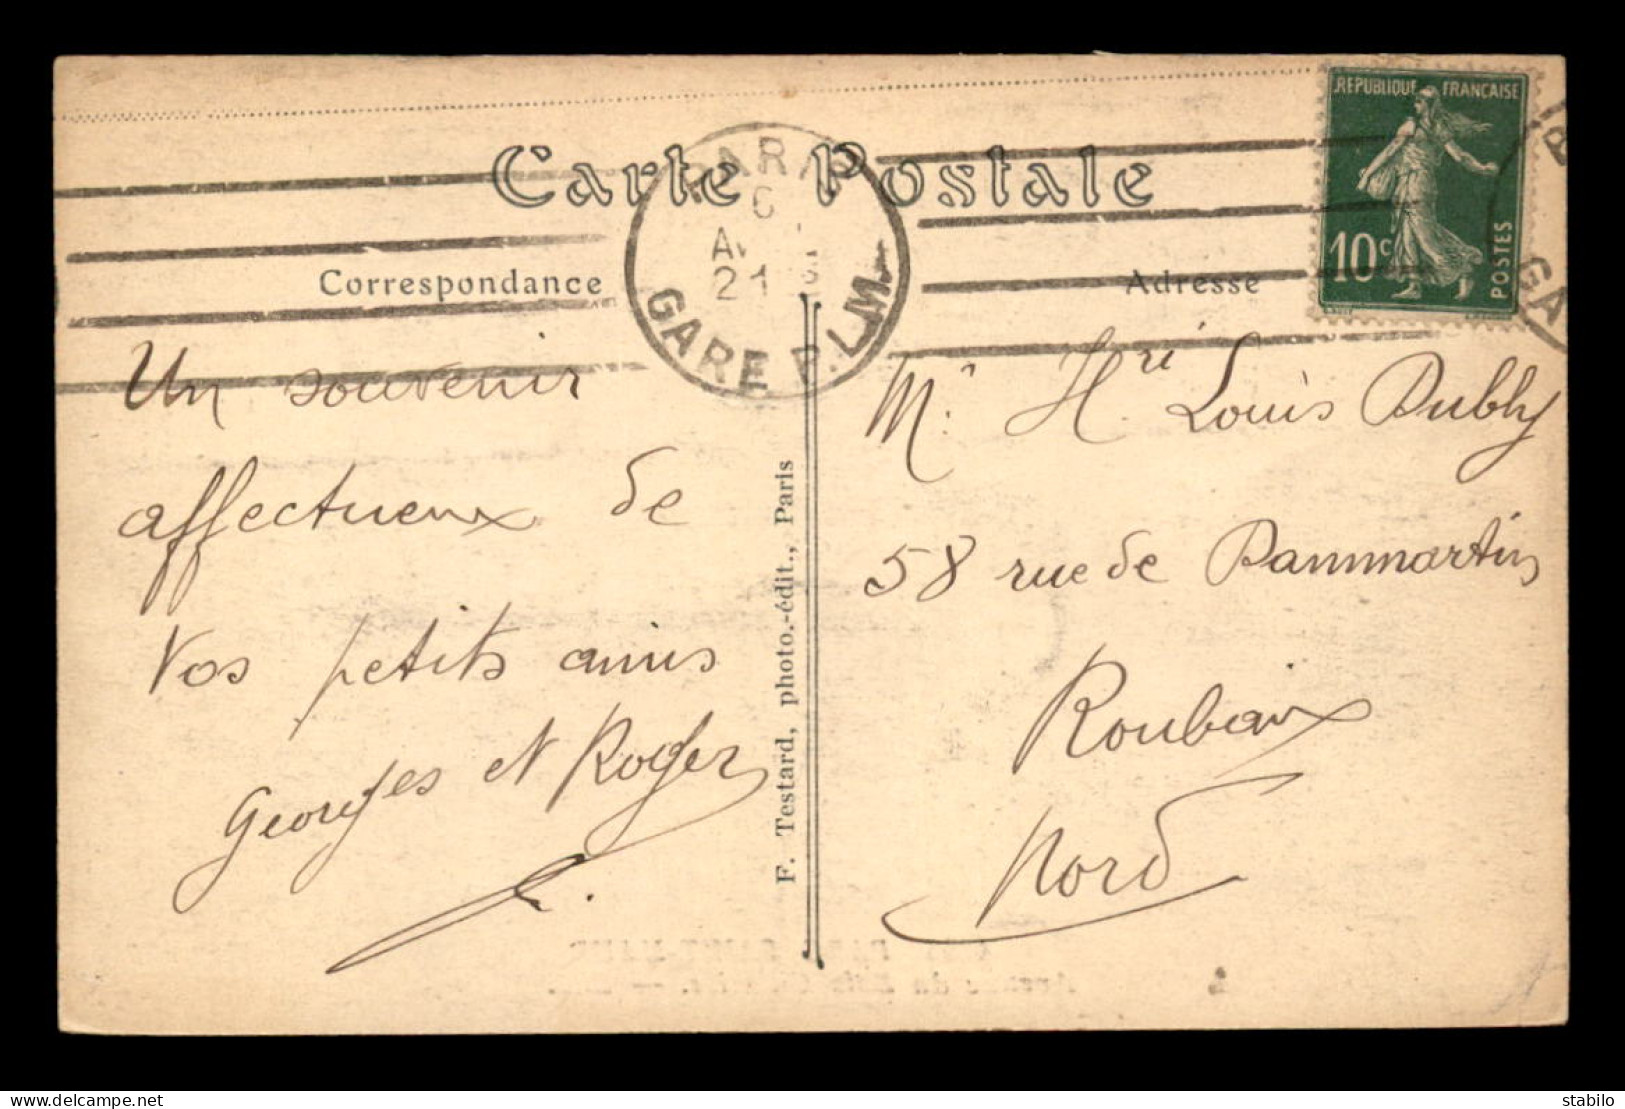 Carte Postale
Correspondance
Adresse
REPUBLIQUE FRANÇAISE
10c
POSTES
PARIS
6
21
GARE P.L.M.
GA
Un souvenir
affectueux de
Vos petits amis
Georges et Roger
F. Testard, photo.-édit., Paris
Mr. Hri Louis Dubly
58 rue de Dammartin
Roubaix
Nord
delcampe.net
stabilo